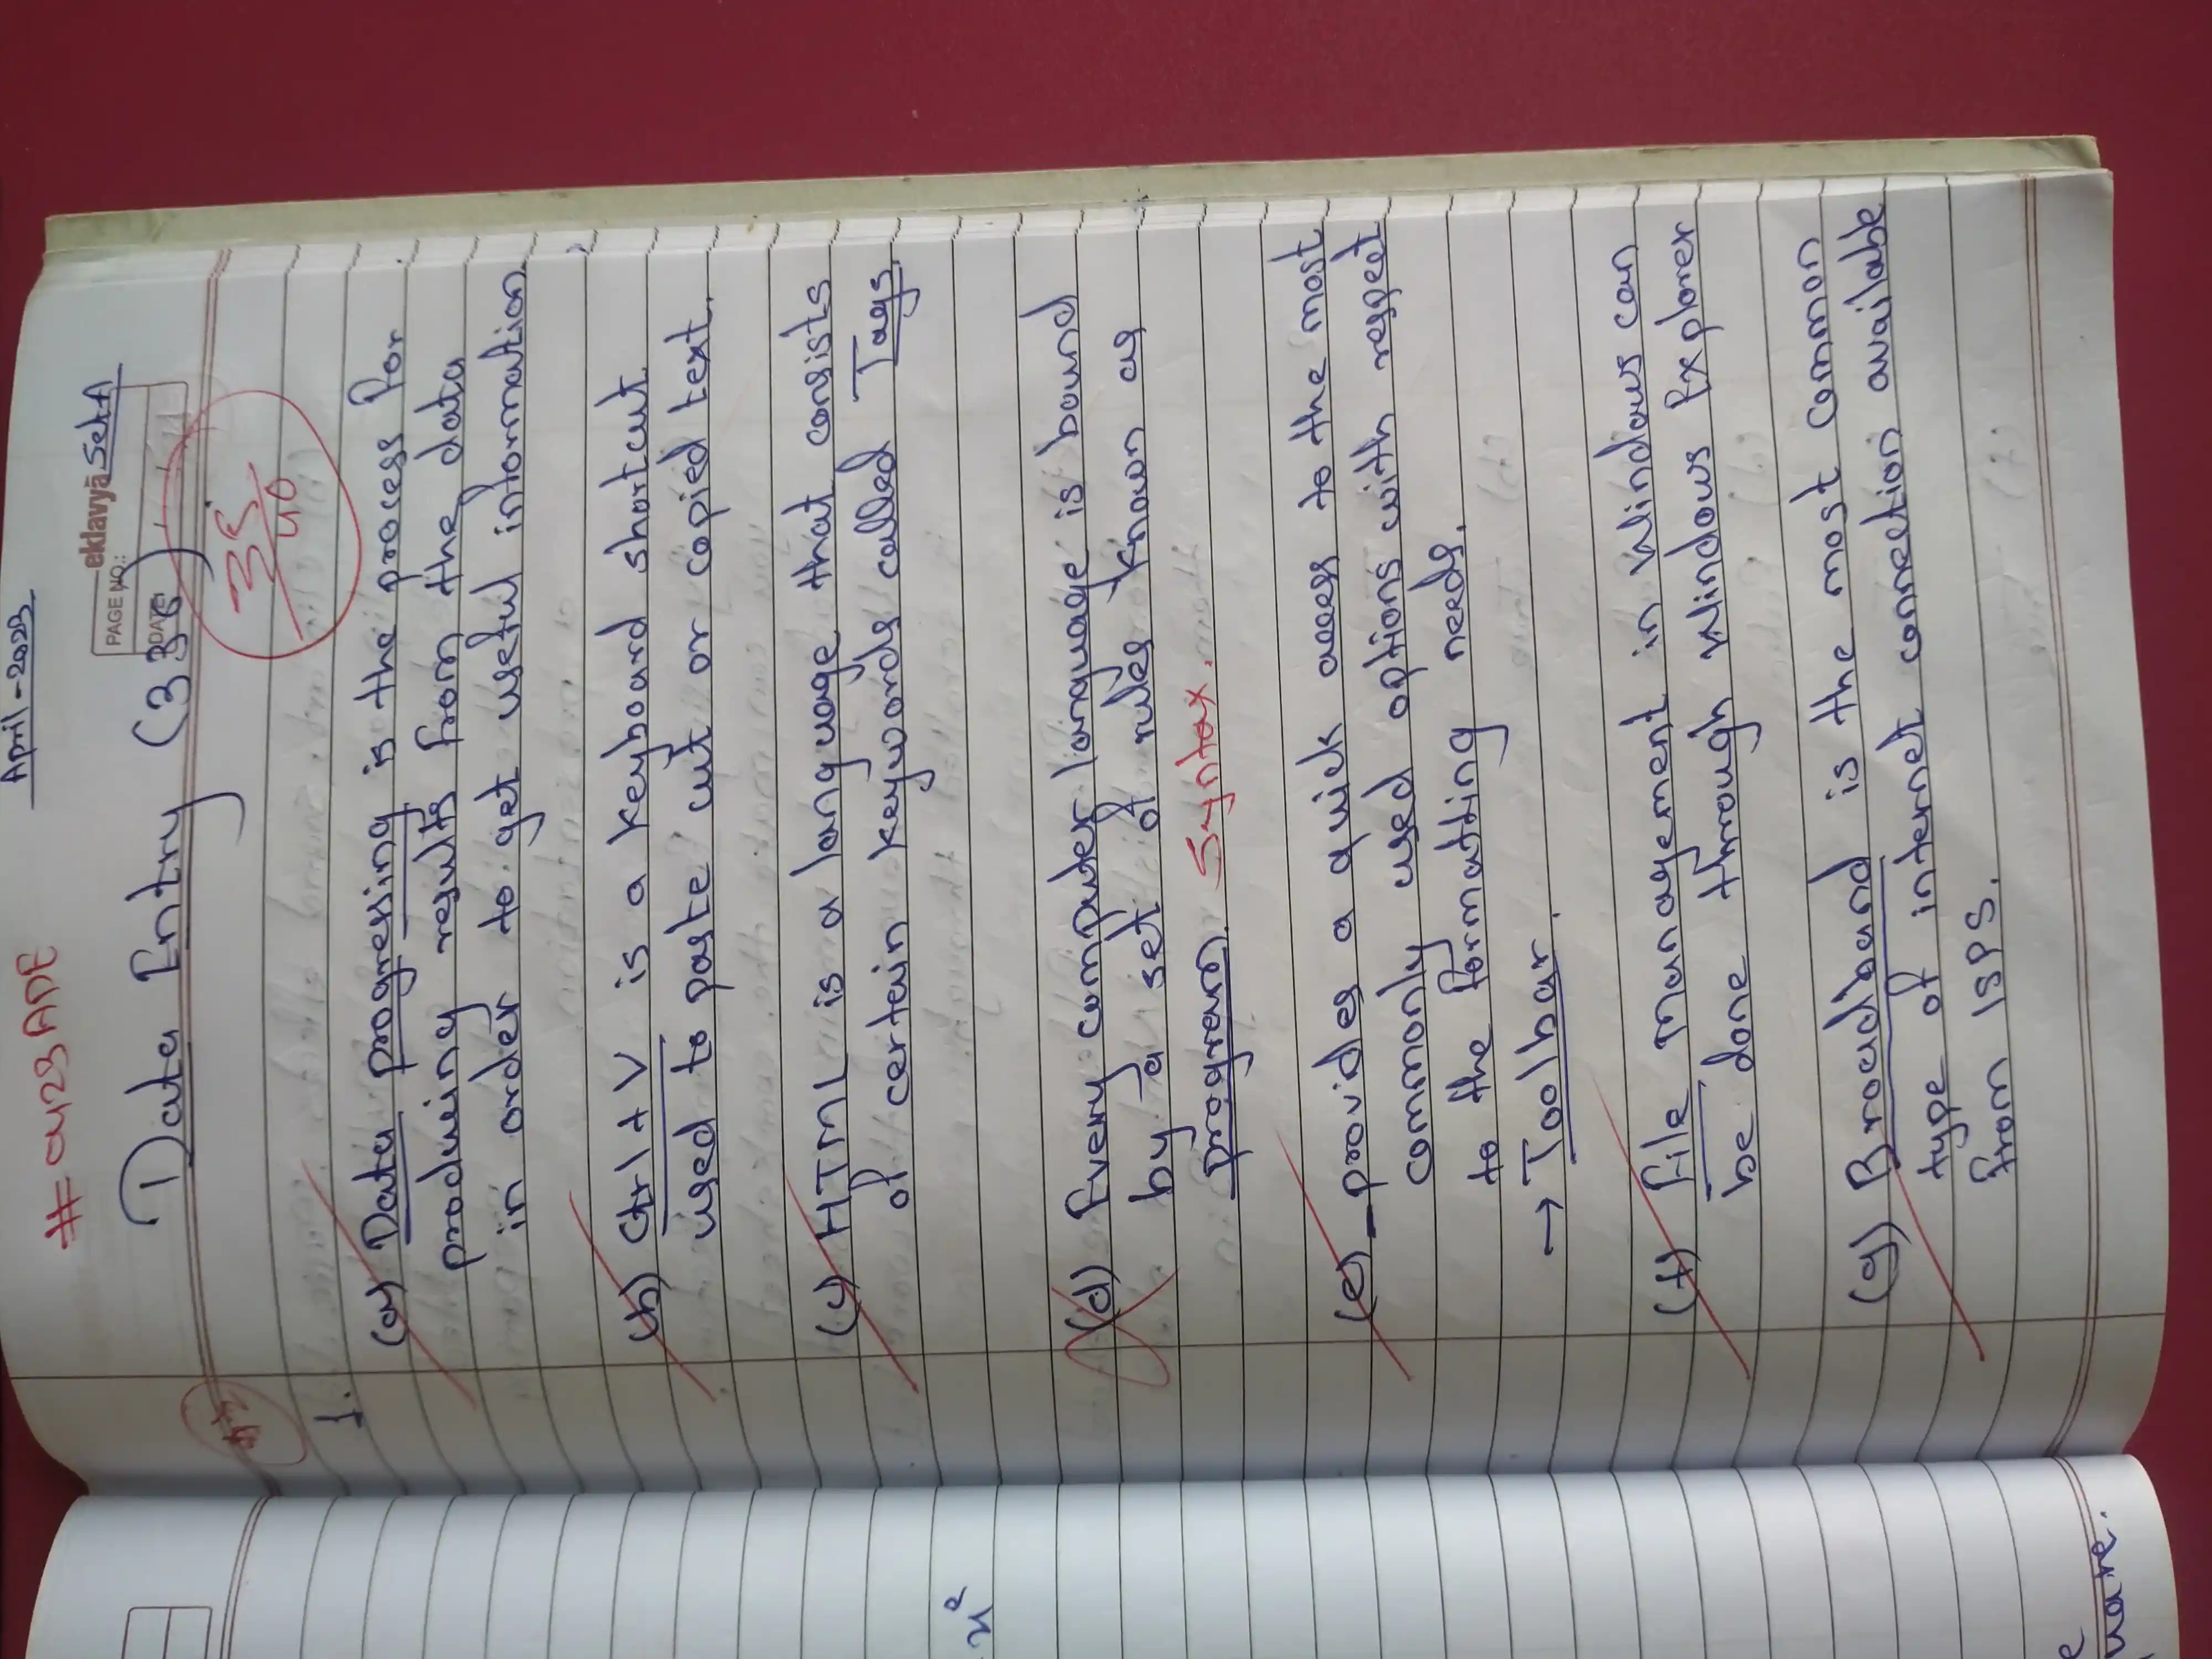 April-2023
# 0423ADE
eklavya Set A
PAGE NO.:
DATE
Data Entry (336)
35/40
1.
(a) Data progressing is the process for
producing results from the data
in order to get useful information.
(b) Ctrl + V is a keyboard shortcut
used to paste cut or copied text.
(c) HTML is a language that consists
of certain keywords called Tags.
(d) Every computer language is bound
by a set of rules known as
program. Syntax.
(e) _ provides a quick acess to the most
commonly used options with respect
to the formatting needs.
→ Toolbar.
(f) File Management in Windows can
be done through Windows Explorer
(g) Broadband is the most common
type of internet connetion available
from ISPS.